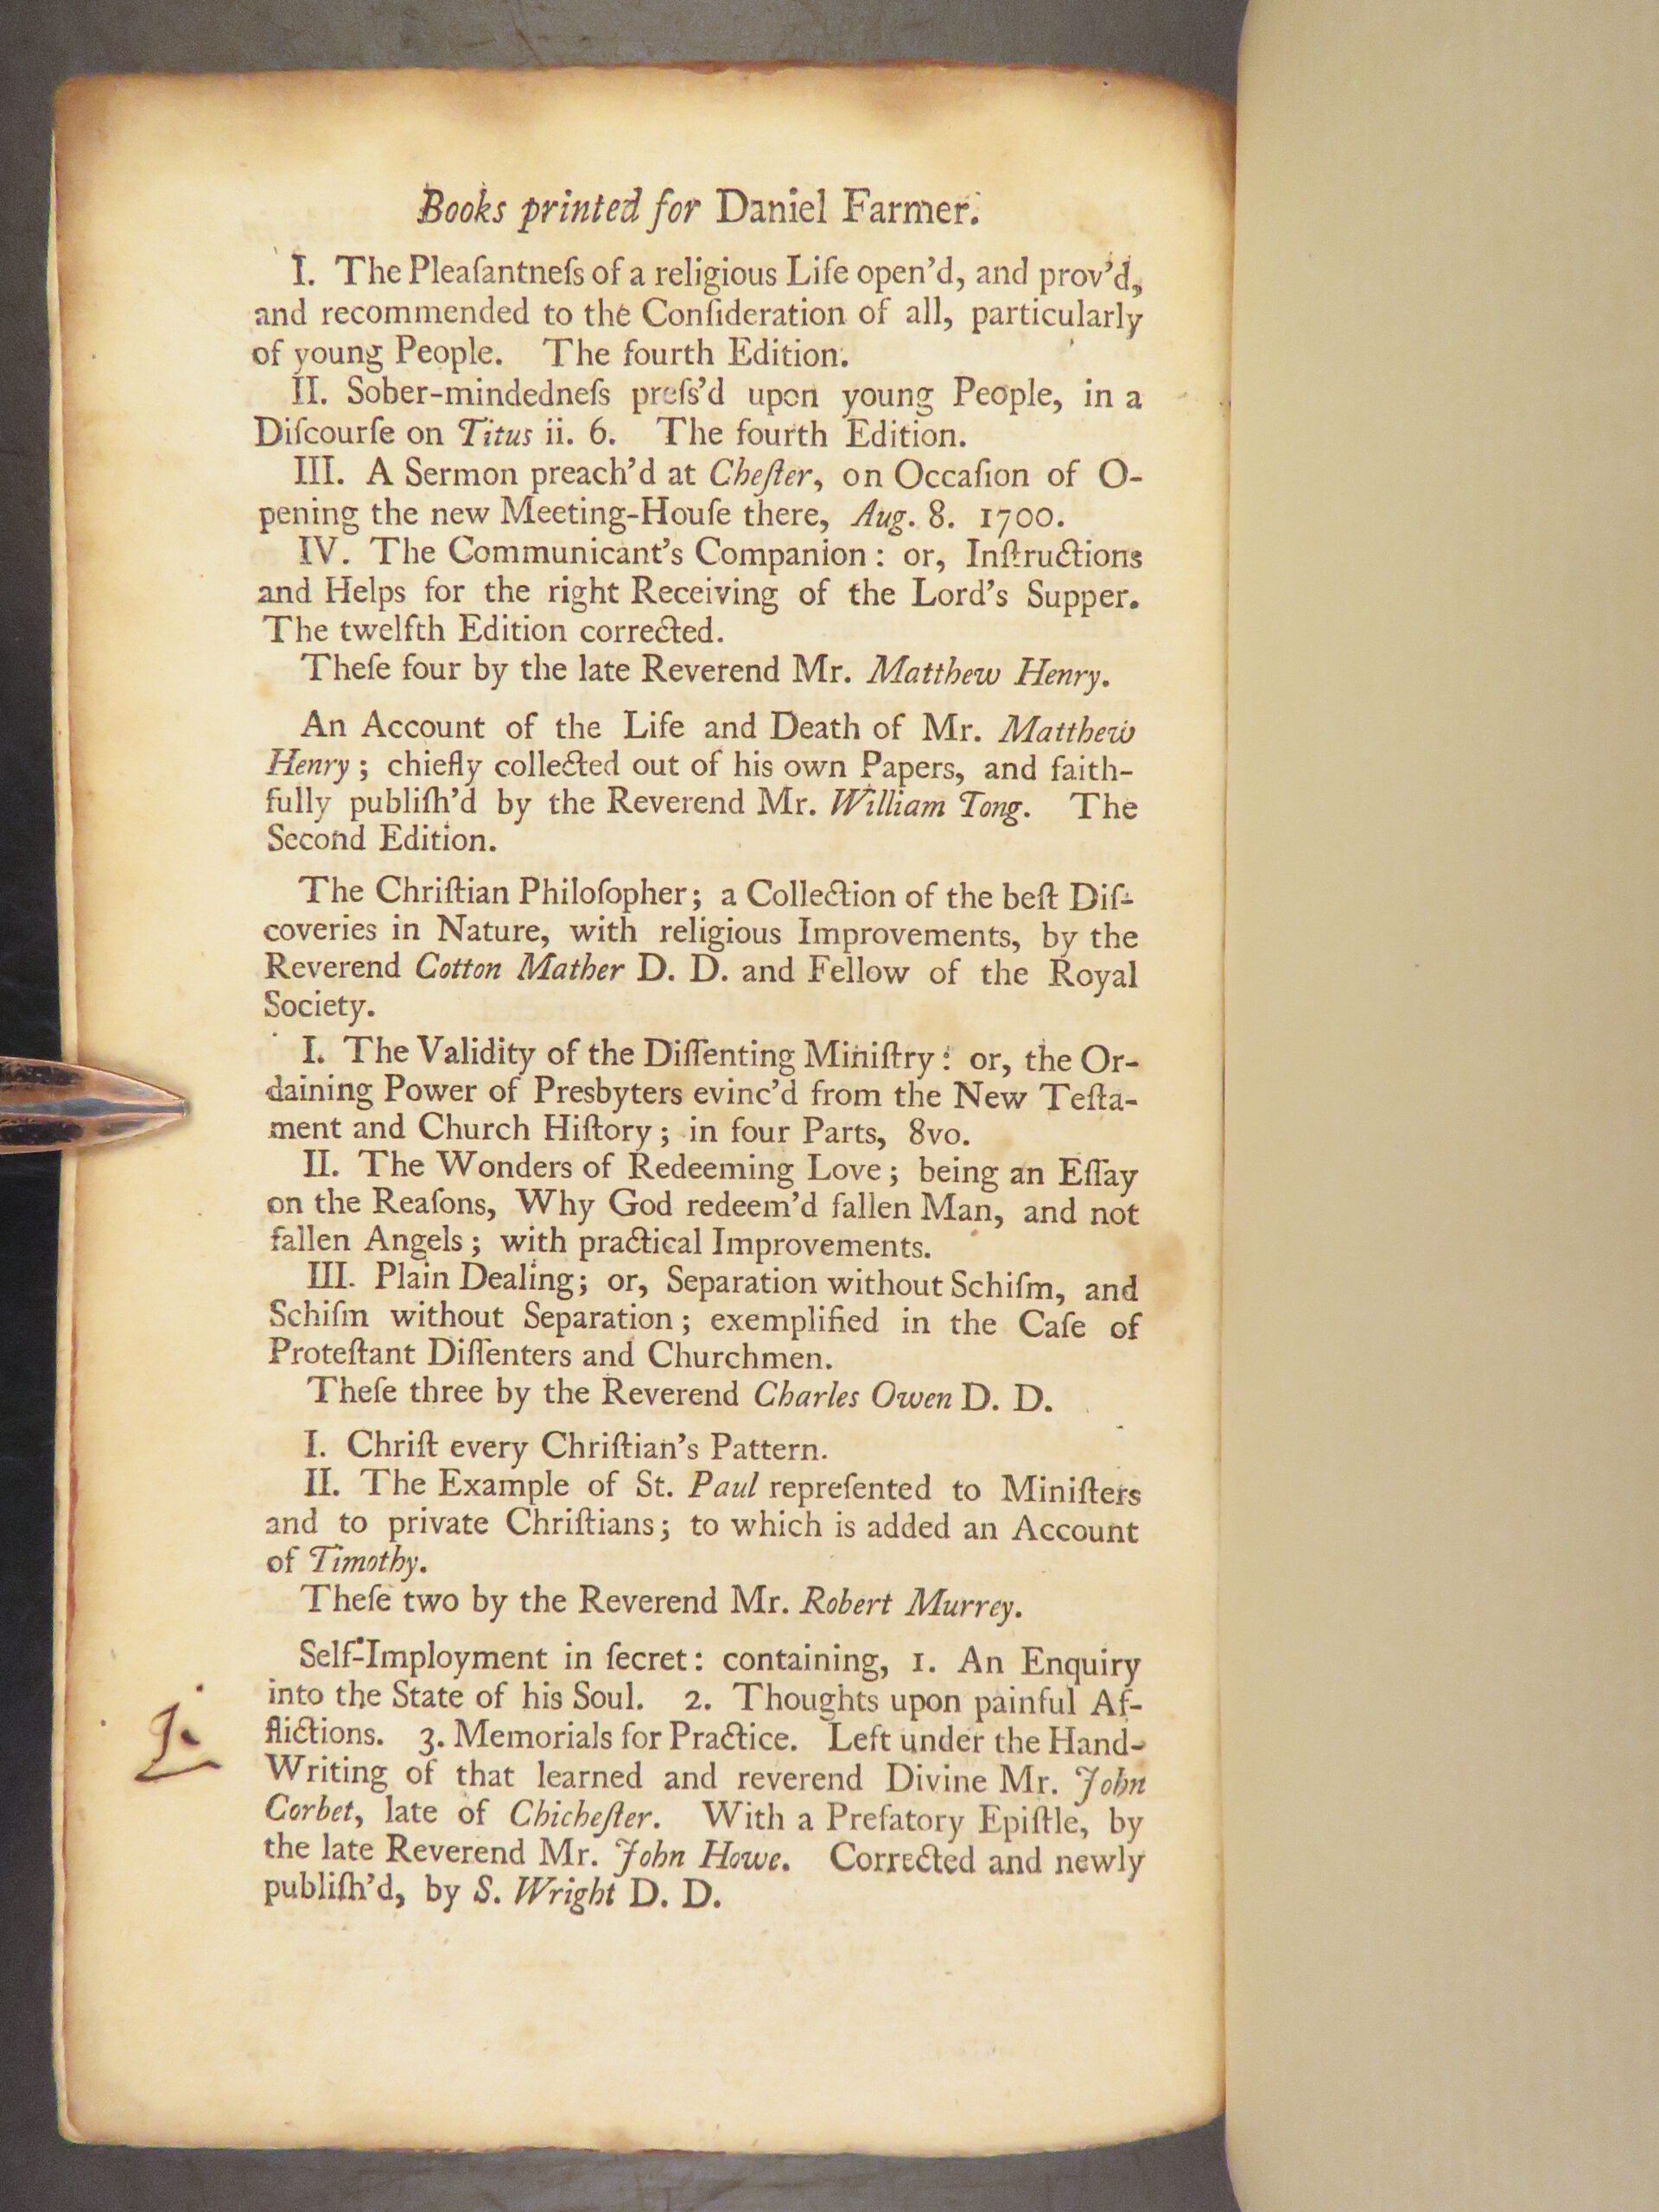 Books printed for Daniel Farmer.
I. The Pleaſantneſs of a religious Life open'd, and prov'd,
and recommended to the Conſideration of all, particularly
of young People. The fourth Edition.
II. Sober-mindedneſs preſs'd upon young People, in a
Diſcourſe on Titus ii. 6. The fourth Edition.
III. A Sermon preach'd at Cheſter, on Occaſion of O-
pening the new Meeting-Houſe there, Aug. 8. 1700.
IV. The Communicant's Companion: or, Inſtructions
and Helps for the right Receiving of the Lord's Supper.
The twelfth Edition corrected.
Theſe four by the late Reverend Mr. Matthew Henry.
An Account of the Life and Death of Mr. Matthew
Henry; chiefly collected out of his own Papers, and faith-
fully publiſh'd by the Reverend Mr. William Tong. The
Second Edition.
The Chriſtian Philoſopher; a Collection of the beſt Diſ-
coveries in Nature, with religious Improvements, by the
Reverend Cotton Mather D. D. and Fellow of the Royal
Society.
I. The Validity of the Diſſenting Miniſtry: or, the Or-
daining Power of Presbyters evinc'd from the New Teſta-
ment and Church Hiſtory; in four Parts, 8vo.
II. The Wonders of Redeeming Love; being an Eſſay
on the Reaſons, Why God redeem'd fallen Man, and not
fallen Angels; with practical Improvements.
III. Plain Dealing; or, Separation without Schiſm, and
Schiſm without Separation; exemplified in the Caſe of
Proteſtant Diſſenters and Churchmen.
Theſe three by the Reverend Charles Owen D. D.
I. Chriſt every Chriſtian's Pattern.
II. The Example of St. Paul repreſented to Miniſters
and to private Chriſtians; to which is added an Account
of Timothy.
Theſe two by the Reverend Mr. Robert Murrey.
Self-Imployment in ſecret: containing, 1. An Enquiry
into the State of his Soul. 2. Thoughts upon painful Af-
flictions. 3. Memorials for Practice. Left under the Hand-
Writing of that learned and reverend Divine Mr. John
Corbet, late of Chicheſter. With a Prefatory Epiſtle, by
the late Reverend Mr. John Howe. Corrected and newly
publiſh'd, by S. Wright D. D.